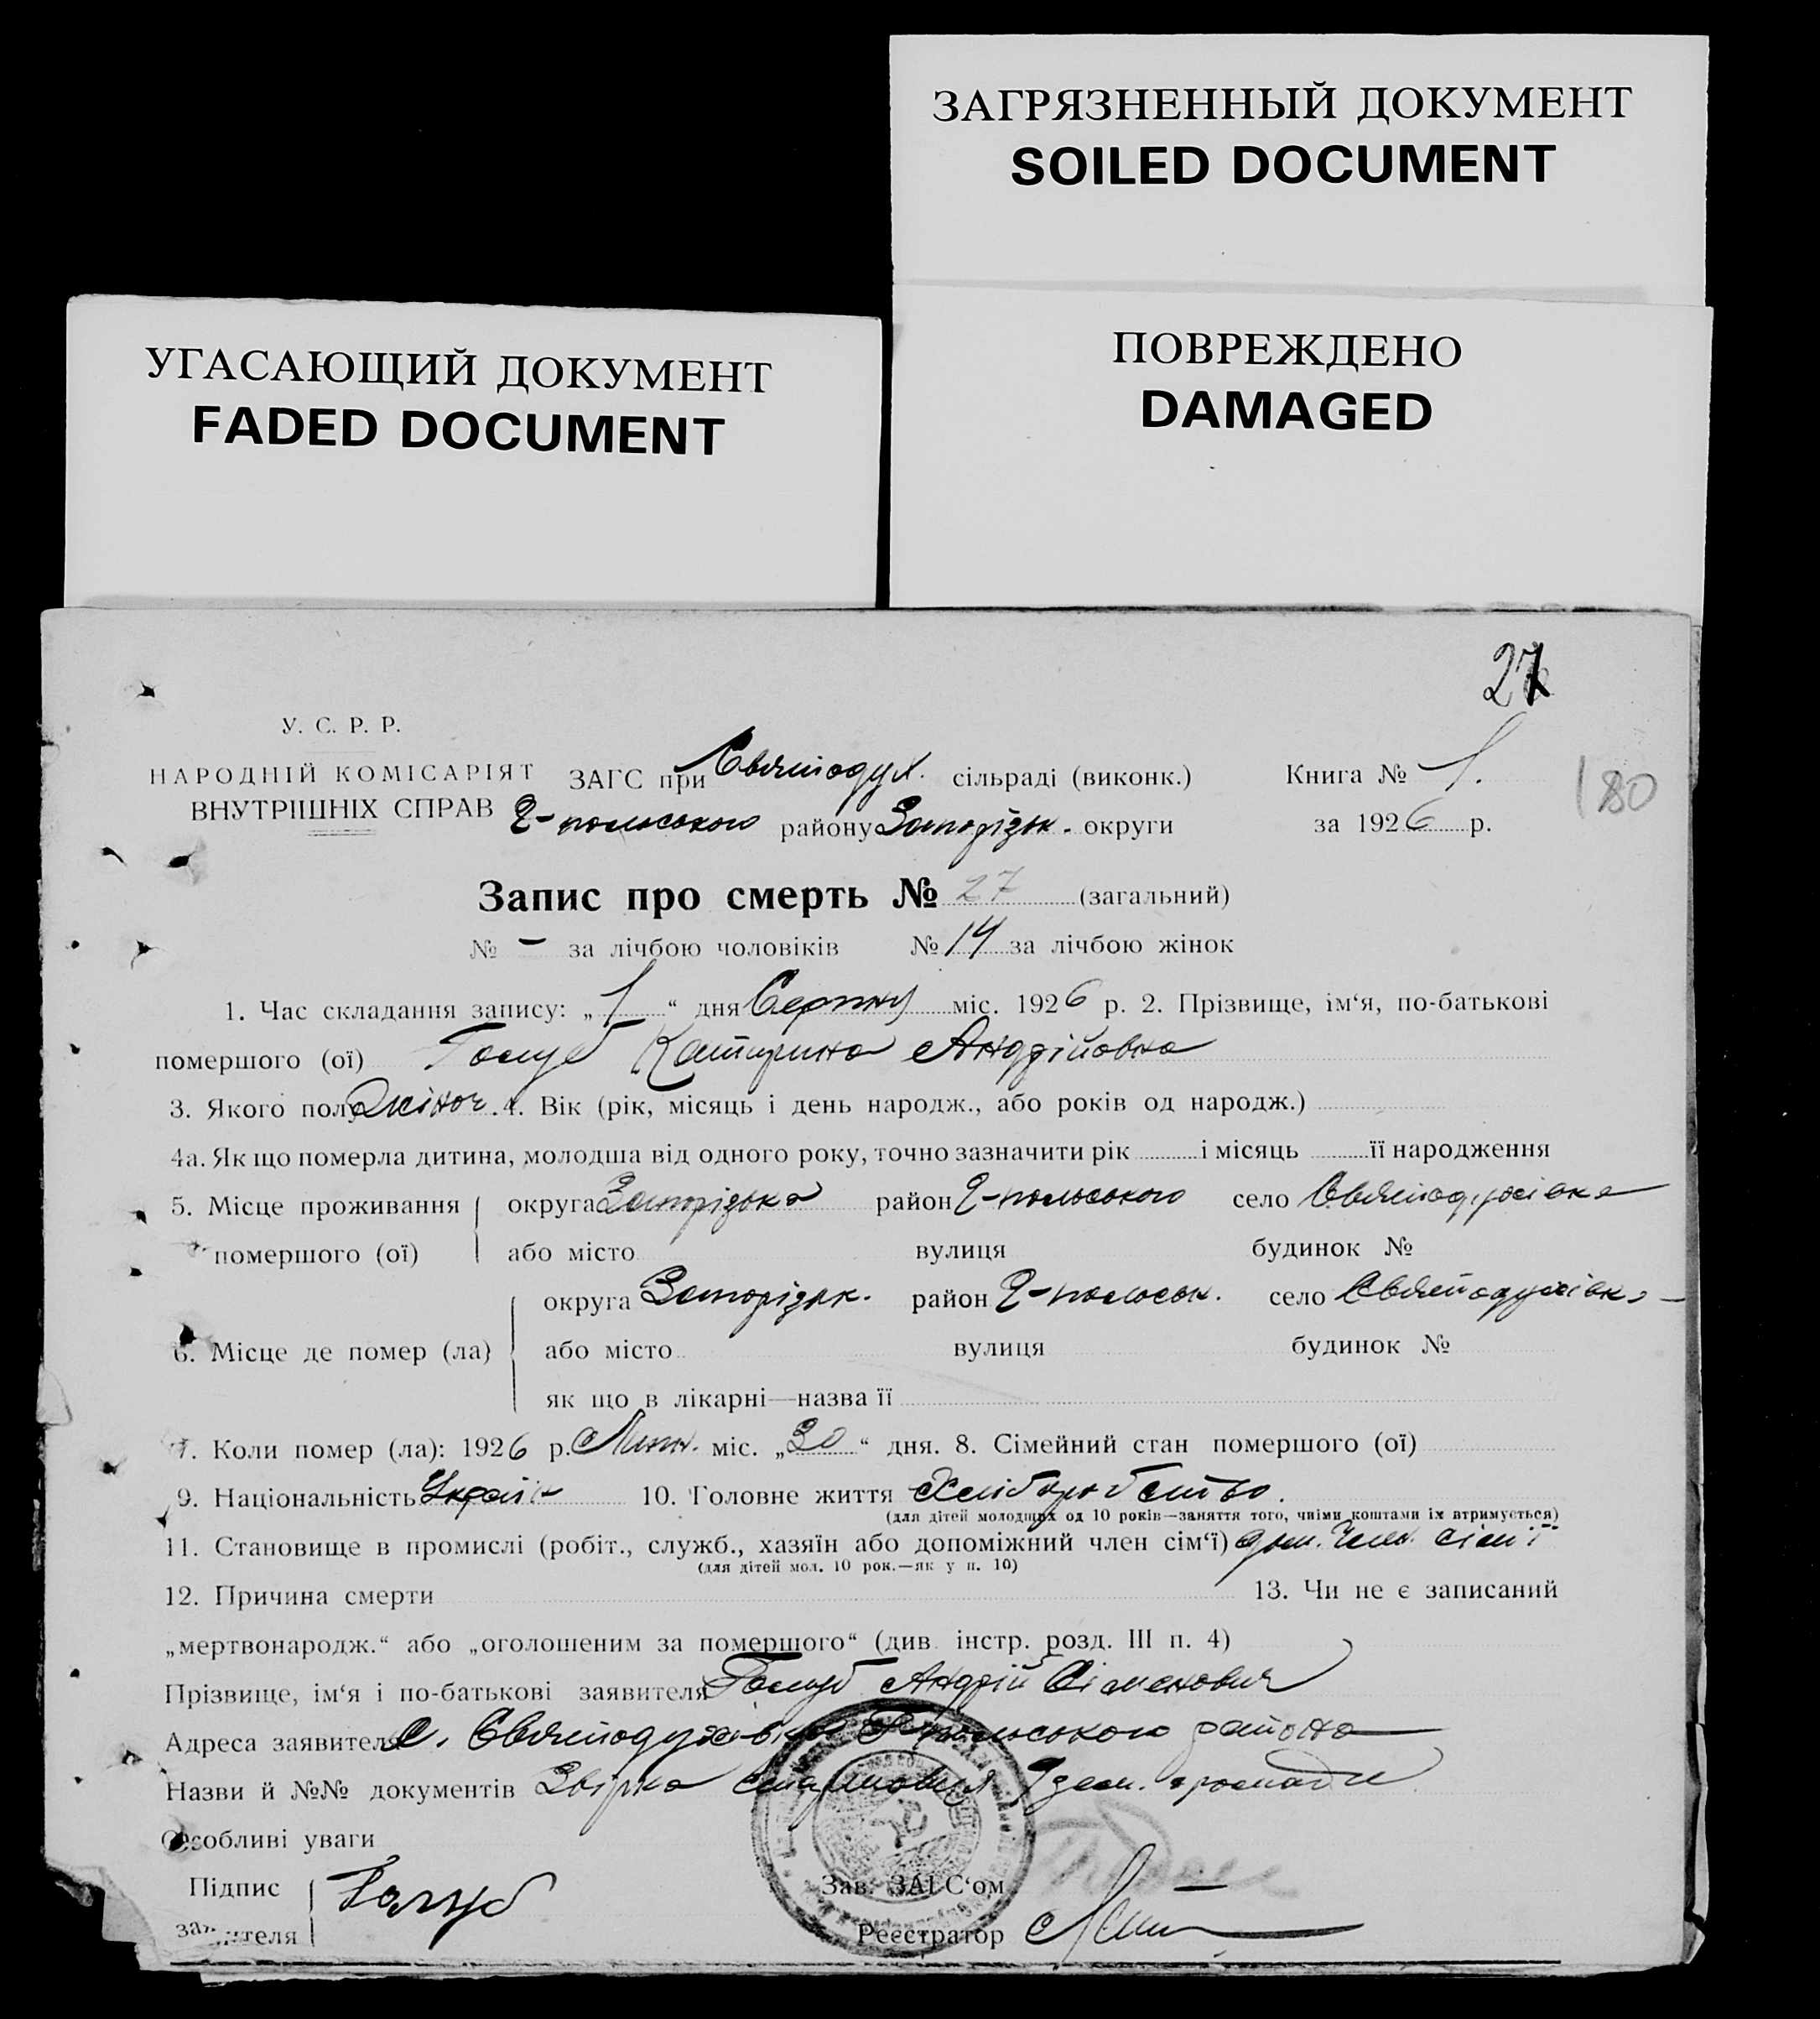 ЗАГРЯЗНЕННЫЙ ДОКУМЕНТ
SOILED DOCUMENT
УГАСАЮЩИЙ ДОКУМЕНТ
FADED DOCUMENT
ПОВРЕЖДЕНО
DAMAGED
27
У. С. Р. Р.
НАРОДНІЙ КОМІСАРІЯТ
ВНУТРІШНІХ СПРАВ
ЗАГС при Святодух. сільраді (виконк.) Книга № 1.
180
району Запорізьк. округи за 1926 р.
Запис про смерть № 27 (загальний)
№ – за лічбою чоловіків № 14 за лічбою жінок
1. Час складання запису: „1“ дня Серпня міс. 1926 р. 2. Прізвище, ім‘я, по-батькові
помершого (ої) Голуб Катирина Андрійовна
3. Якого полу жіноч. 4. Вік (рік, місяць і день народж., або років од народж.)
4а. Як що померла дитина, молодша від одного року, точно зазначити рік і місяць її народження
5. Місце проживання округа Запорізька район село Святодухівка
помершого (ої) або місто вулиця будинок №
округа Запорізьк. район село Святодухівка
6. Місце де помер (ла) або місто вулиця будинок №
як що в лікарні—назва її
7. Коли помер (ла): 1926 р. Липн. міс. „30“ дня. 8. Сімейний стан помершого (ої)
9. Національність Україн 10. Головне життя Хліборобство.
(для дітей молодших од 10 років—заняття того, чиїми коштами їх втримується)
11. Становище в промислі (робіт., служб., хазяїн або допоміжний член сім‘ї) доп. член. сімї
(для дітей мол. 10 рок.—як у п. 10)
12. Причина смерти 13. Чи не є записаний
„мертвонародж.“ або „оголошеним за помершого“ (див. інстр. розд. III п. 4)
Прізвище, ім‘я і по-батькові заявителя Голуб Андрій Сіменович
Адреса заявителя с. Святодухівка району
Назви й №№ документів громади
Особливі уваги
Підпис Голуб Зав. ЗАГС‘ом
заявителя Реєстратор